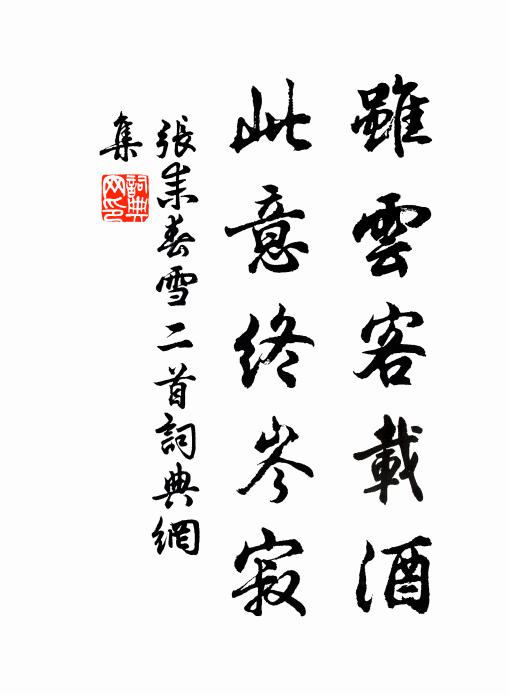 雖雲客載酒
此意終岑寂
張耒春雪二首詞典網
集
詞典網印